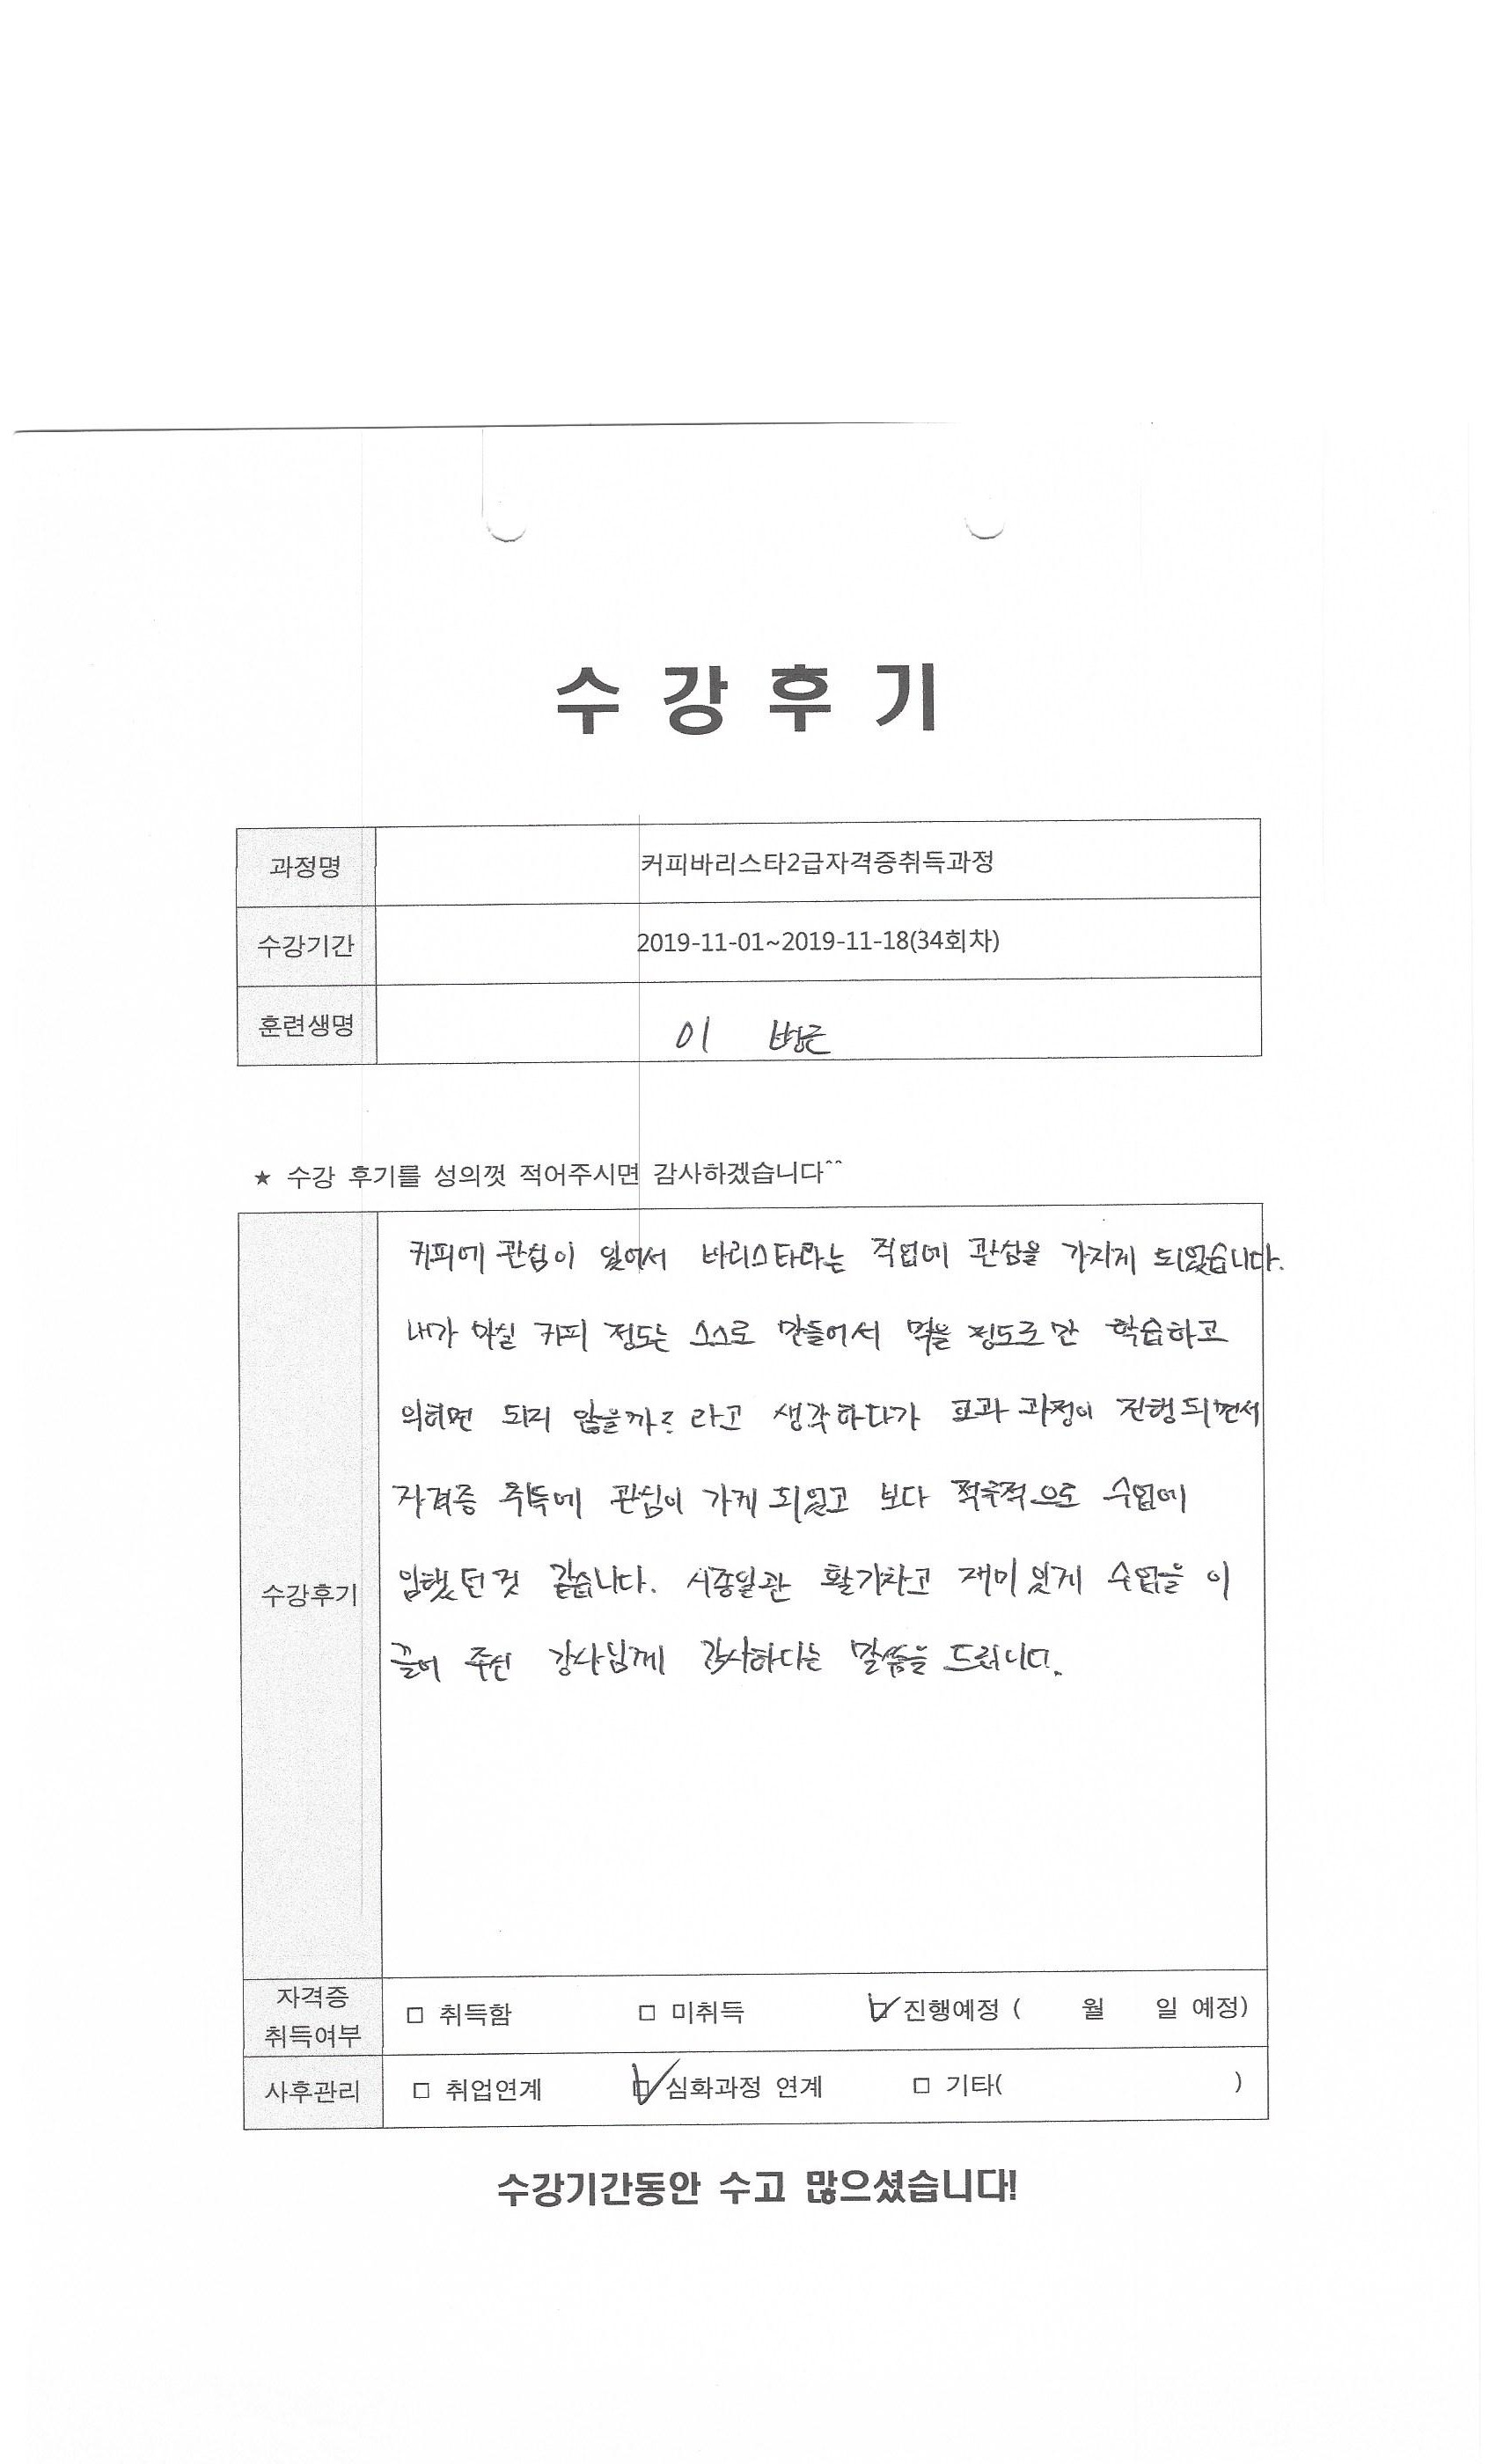 수 강 후 기
과정명 커피바리스타2급자격증취득과정
수강기간 2019-11-01~2019-11-18(34회차)
훈련생명 이
★ 수강 후기를 성의껏 적어주시면 감사하겠습니다^^
커피에 관심이 있어서 바리스타라는 직업에 관심을 가지게 되었습니다.
내가 마실 커피 정도는 스스로 만들어서 먹을 정도로만 학습하고
의하면 되지 않을까? 라고 생각하다가 교과 과정이 진행되면서
자격증 취득에 관심이 가게 되었고 보다 적극적으로 수업에
수강후기
임했던것 같습니다. 시종일관 활기차고 재미있게 수업을 이
끌어 주신 강사님께 감사하다는 말씀을 드립니다.
자격증
취득여부
□ 취득함 □ 미취득 ☑ 진행예정 ( 월 일 예정)
사후관리 □ 취업연계 ☑ 심화과정 연계 □ 기타( )
수강기간동안 수고 많으셨습니다!